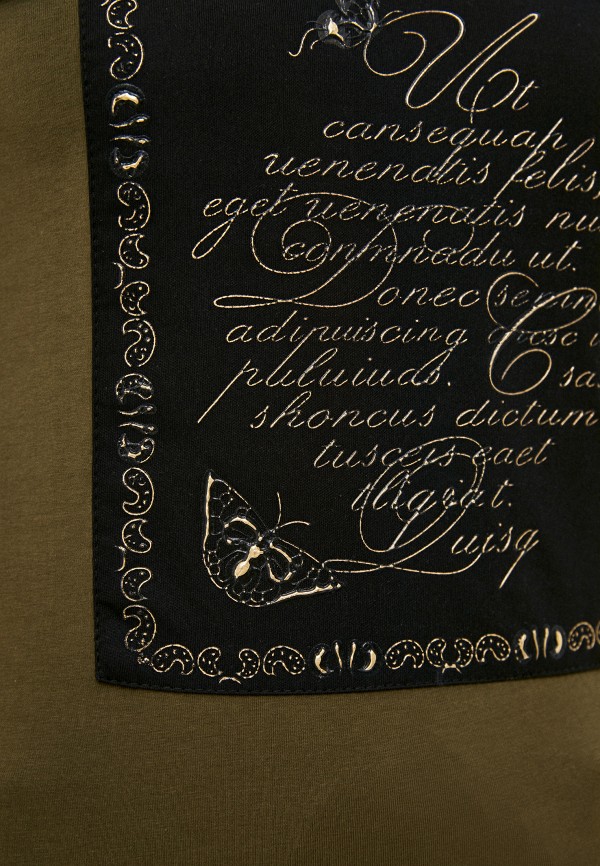 Ut
cansequap
uenenatis felis,
eget uenenatis nu
conmnadu ut.
Donec semn
adipuiscing
puluiuds. Csa
shoncus dictum
tusceis eaet
fligiat.
Quisq